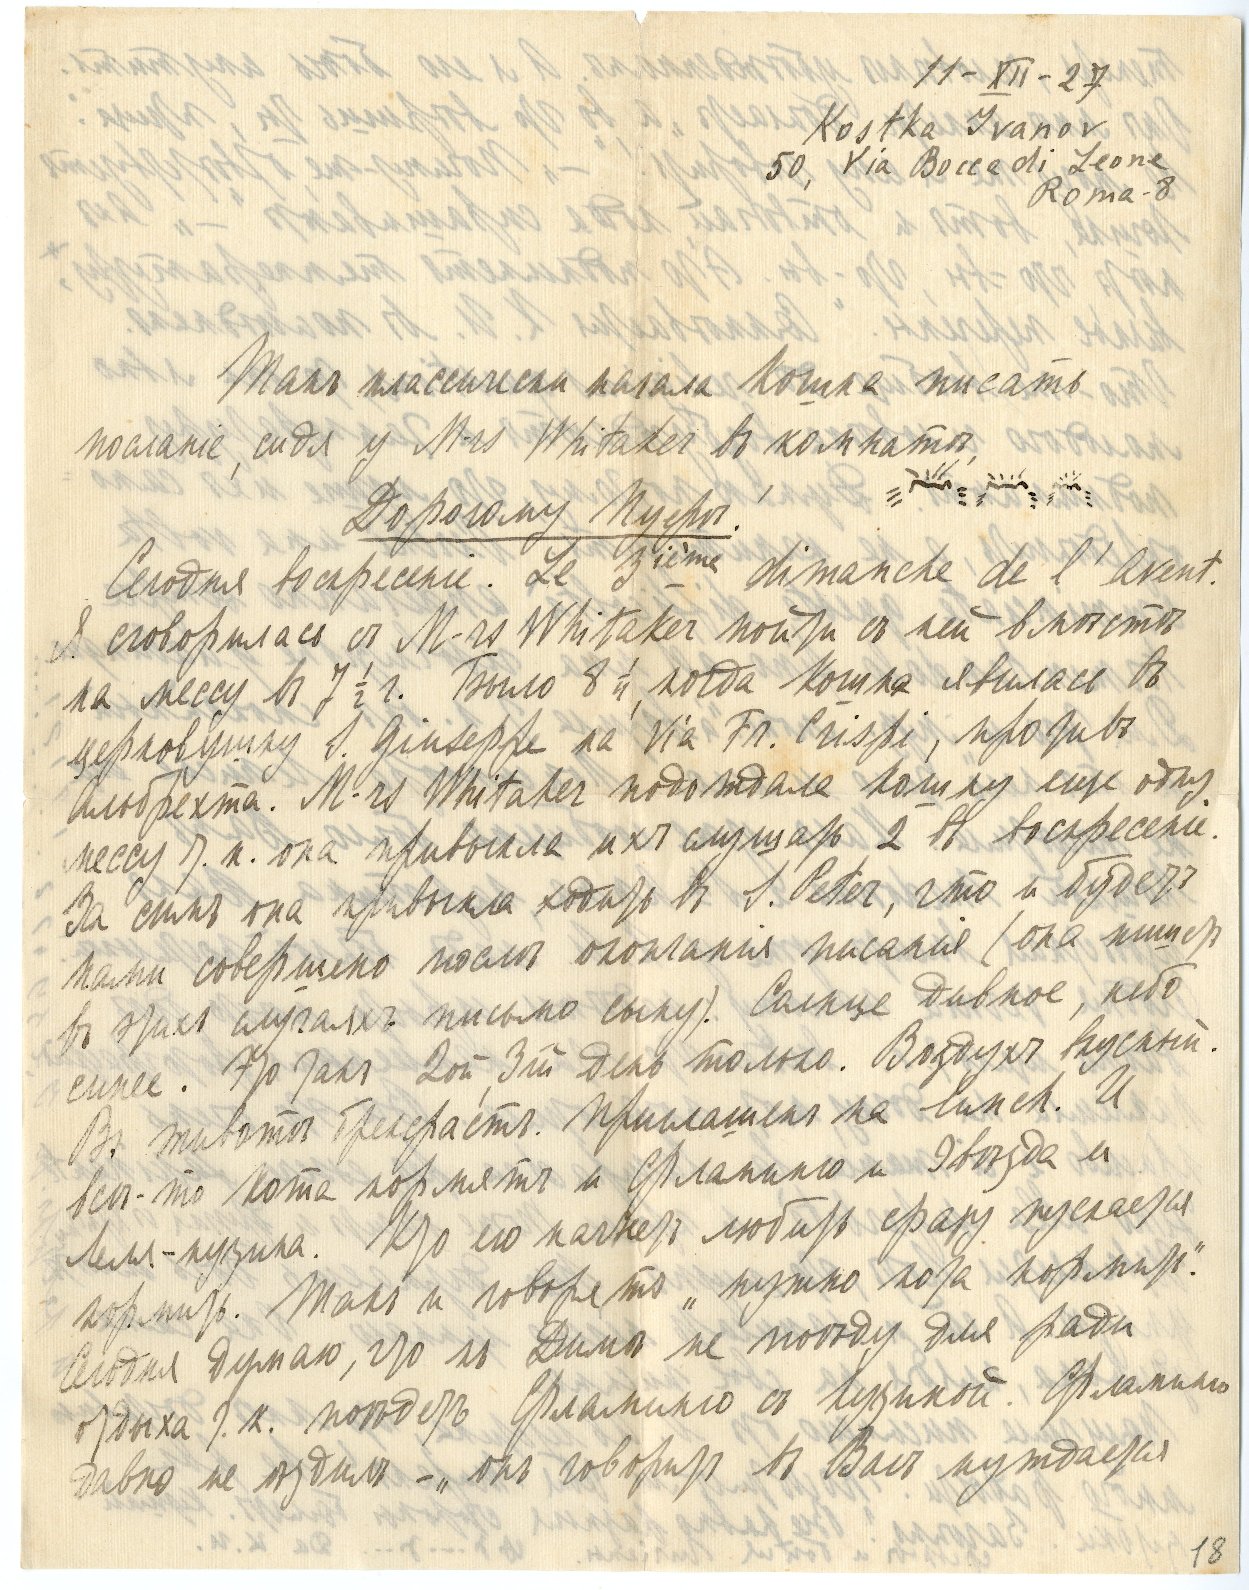 11-XII-27
Kostka Ivanov
50, Via Bocca di Leone
Roma-8
Такъ классически начала Кошка писать
посланіе, сидя у M-rs Whitaker въ комнатѣ,
Дорогому Пуерѣ!
Сегодня воскресеніе. Le 3ième dimanche de l'Avent.
Я сговорилась съ M-rs Whitaker пойти съ ней вмѣстѣ
на мессу въ 7 1/2 ч. Было 8 1/4, когда Кошка явилась въ
церковушку S. Giuseppe на Via Fr. Crispi, противъ
Альбрехта. M-rs Whitaker подождала кошку еще одну
мессу т. к. она привыкла ихъ слушать 2 въ воскресеніе.
За симъ она привыкла ходить въ S. Peter, что и будетъ
нами совершено послѣ окончанія писанія (она пишетъ
въ этихъ случаяхъ письмо сыну). Солнце дивное, небо
синее. Это такъ 2ой, 3ій день только. Воздухъ вкусный.
Въ животѣ брекфастъ. Приглашенъ на lunch. И
всѣ-то Кота кормятъ и Фламинго и Звѣзда и
Леля-кузина. Кто его начнетъ любить сразу пускается
кормить. Такъ и говорятъ „нужно кота кормить".
Сегодня думаю, что къ Димѣ не поѣду для ради
отдыха т. к. поѣдетъ Фламинго съ кузиной. Фламинго
давно не ѣздилъ – „онъ говоритъ въ Васъ нуждается
18